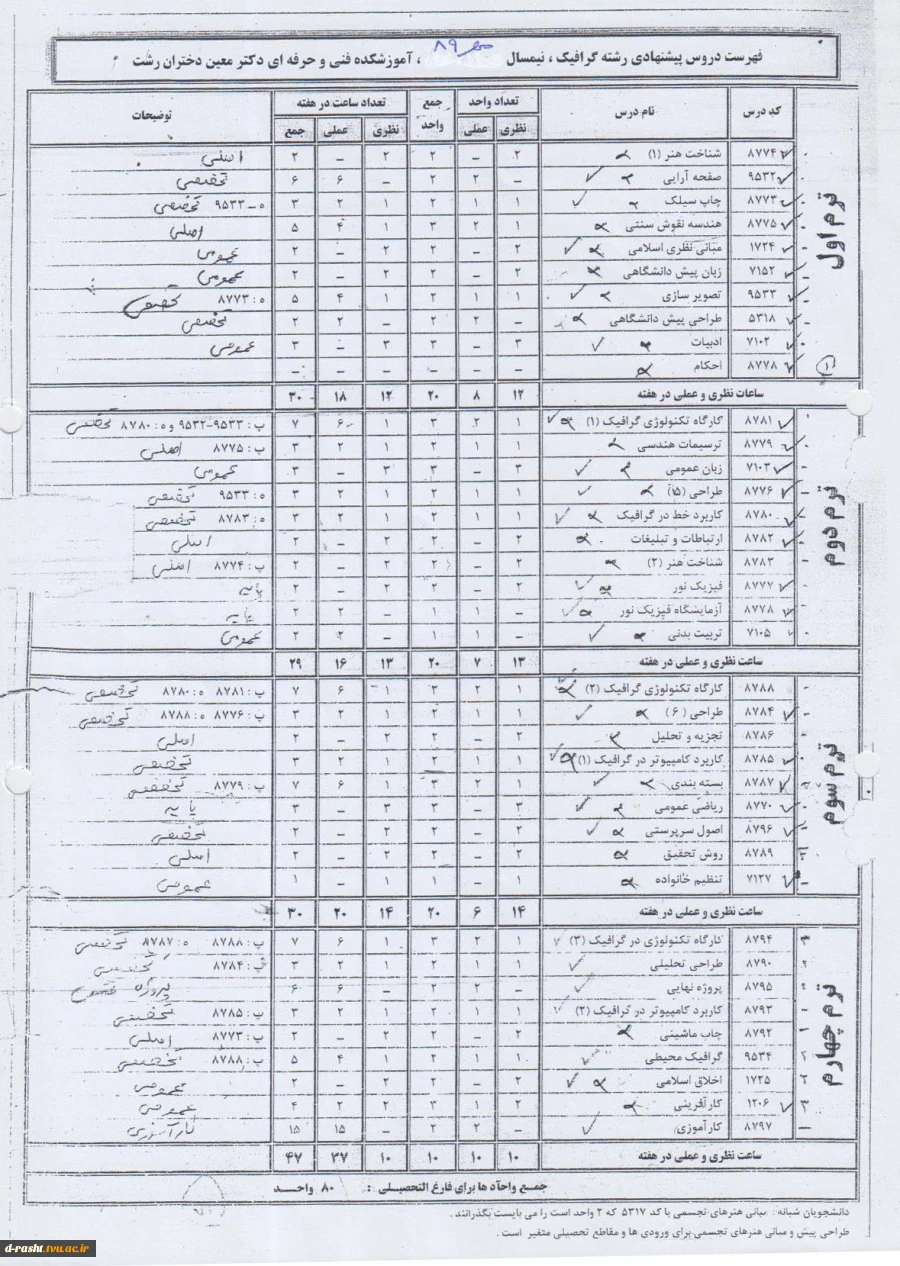 فهرست دروس پیشنهادی رشته گرافیک ، نیمسال مهر ۸۹ ، آموزشکده فنی و حرفه ای دکتر معین دختران رشت
کد درس نام درس تعداد واحد جمع واحد تعداد ساعت در هفته توضیحات
نظری عملی نظری عملی جمع
ترم اول
۸۷۷۴ شناخت هنر (۱) ۲ – ۲ ۲ – ۲ اصلی
۹۵۳۲ صفحه آرایی – ۲ ۲ – ۶ ۶ تخصصی
۸۷۷۳ چاپ سیلک ۱ ۱ ۲ ۱ ۲ ۳ ه–۹۵۳۳ تخصصی
۸۷۷۵ هندسه نقوش سنتی ۱ ۲ ۳ ۱ ۴ ۵ اصلی
۱۷۲۴ مبانی نظری اسلامی ۲ – ۲ ۲ – ۲ عمومی
۷۱۵۲ زبان پیش دانشگاهی ۲ – ۲ ۲ – ۲ عمومی
۹۵۳۳ تصویر سازی ۱ ۱ ۲ ۱ ۴ ۵ ه: ۸۷۷۳ تخصصی
۵۳۱۸ طراحی پیش دانشگاهی – ۲ ۲ – ۲ ۲ تخصصی
۷۱۰۲ ادبیات ۳ – ۳ ۳ – ۳ عمومی
۸۷۷۸ احکام – – – – – –
ساعات نظری و عملی در هفته ۱۲ ۸ ۲۰ ۱۲ ۱۸ ۳۰
ترم دوم
۸۷۸۱ کارگاه تکنولوژی گرافیک (۱) ۱ ۲ ۳ ۱ ۶ ۷ پ: ۹۵۳۳–۹۵۳۲ و ه: ۸۷۸۰ تخصصی
۸۷۷۹ ترسیمات هندسی ۱ ۱ ۲ ۱ ۲ ۳ پ: ۸۷۷۵ اصلی
۷۱۰۳ زبان عمومی ۳ – ۳ ۳ – ۳ عمومی
۸۷۷۶ طراحی (۵) ۱ ۱ ۲ ۱ ۲ ۳ ه: ۹۵۳۳ تخصصی
۸۷۸۰ کاربرد خط در گرافیک ۱ ۱ ۲ ۱ ۲ ۳ ه: ۸۷۸۳ تخصصی
۸۷۸۲ ارتباطات و تبلیغات ۲ – ۲ ۲ – ۲ اصلی
۸۷۸۳ شناخت هنر (۲) ۲ – ۲ ۲ – ۲ پ: ۸۷۷۴ اصلی
۸۷۷۷ فیزیک نور ۲ – ۲ ۲ – ۲ پایه
۸۷۷۸ آزمایشگاه فیزیک نور – ۱ ۱ – ۲ ۲ پایه
۷۱۰۵ تربیت بدنی – ۱ ۱ – ۲ ۲ عمومی
ساعت نظری و عملی در هفته ۱۳ ۷ ۲۰ ۱۳ ۱۶ ۲۹
ترم سوم
۸۷۸۸ کارگاه تکنولوژی گرافیک (۲) ۱ ۲ ۳ ۱ ۶ ۷ پ: ۸۷۸۱ ه: ۸۷۸۰ تخصصی
۸۷۸۴ طراحی (۶) ۱ ۱ ۲ ۱ ۲ ۳ پ: ۸۷۷۶ ه: ۸۷۸۸ تخصصی
۸۷۸۶ تجزیه و تحلیل ۲ – ۲ ۲ – ۲ اصلی
۸۷۸۵ کاربرد کامپیوتر در گرافیک (۱) ۱ ۱ ۲ ۱ ۲ ۳ تخصصی
۸۷۸۷ بسته بندی ۱ ۲ ۳ ۱ ۶ ۷ پ: ۸۷۷۹ تخصصی
۸۷۷۰ ریاضی عمومی ۳ – ۳ ۳ – ۳ پایه
۸۷۹۶ اصول سرپرستی ۲ – ۲ ۲ – ۲ تخصصی
۸۷۸۹ روش تحقیق ۲ – ۲ ۲ – ۲ اصلی
۷۱۲۷ تنظیم خانواده ۱ – ۱ ۱ – ۱ عمومی
ساعت نظری و عملی در هفته ۱۴ ۶ ۲۰ ۱۴ ۲۰ ۳۰
ترم چهارم
۸۷۹۴ کارگاه تکنولوژی در گرافیک (۳) ۱ ۲ ۳ ۱ ۶ ۷ پ: ۸۷۸۸ ه: ۸۷۸۷ تخصصی
۸۷۹۰ طراحی تحلیلی ۱ ۱ ۲ ۱ ۲ ۳ پ: ۸۷۸۴ تخصصی
۸۷۹۵ پروژه نهایی – ۲ ۲ – ۶ ۶ پروژه
۸۷۹۳ کاربرد کامپیوتر در گرافیک (۲) ۱ ۱ ۲ ۱ ۲ ۳ پ: ۸۷۸۵ تخصصی
۸۷۹۲ چاپ ماشینی ۲ – ۲ ۲ – ۲ پ: ۸۷۷۳ اصلی
۹۵۳۴ گرافیک محیطی ۱ ۱ ۲ ۱ ۴ ۵ پ: ۸۷۸۸ تخصصی
۱۷۲۵ اخلاق اسلامی ۲ – ۲ ۲ – ۲ عمومی
۱۲۰۶ کارآفرینی ۲ ۱ ۳ ۲ ۲ ۴ عمومی
۸۷۹۷ کارآموزی – ۲ ۲ – ۱۵ ۱۵ کارآموزی
ساعت نظری و عملی در هفته ۱۰ ۱۰ ۱۰ ۱۰ ۳۷ ۴۷
جمع واحد ها برای فارغ التحصیلی : ۸۰ واحد
دانشجویان شبانه : مبانی هنرهای تجسمی با کد ۵۳۱۷ که ۲ واحد است را می بایست بگذرانند .
طراحی پیش و مبانی هنرهای تجسمی برای ورودی ها و مقاطع تحصیلی متغیر است .
d-rasht.tvu.ac.ir